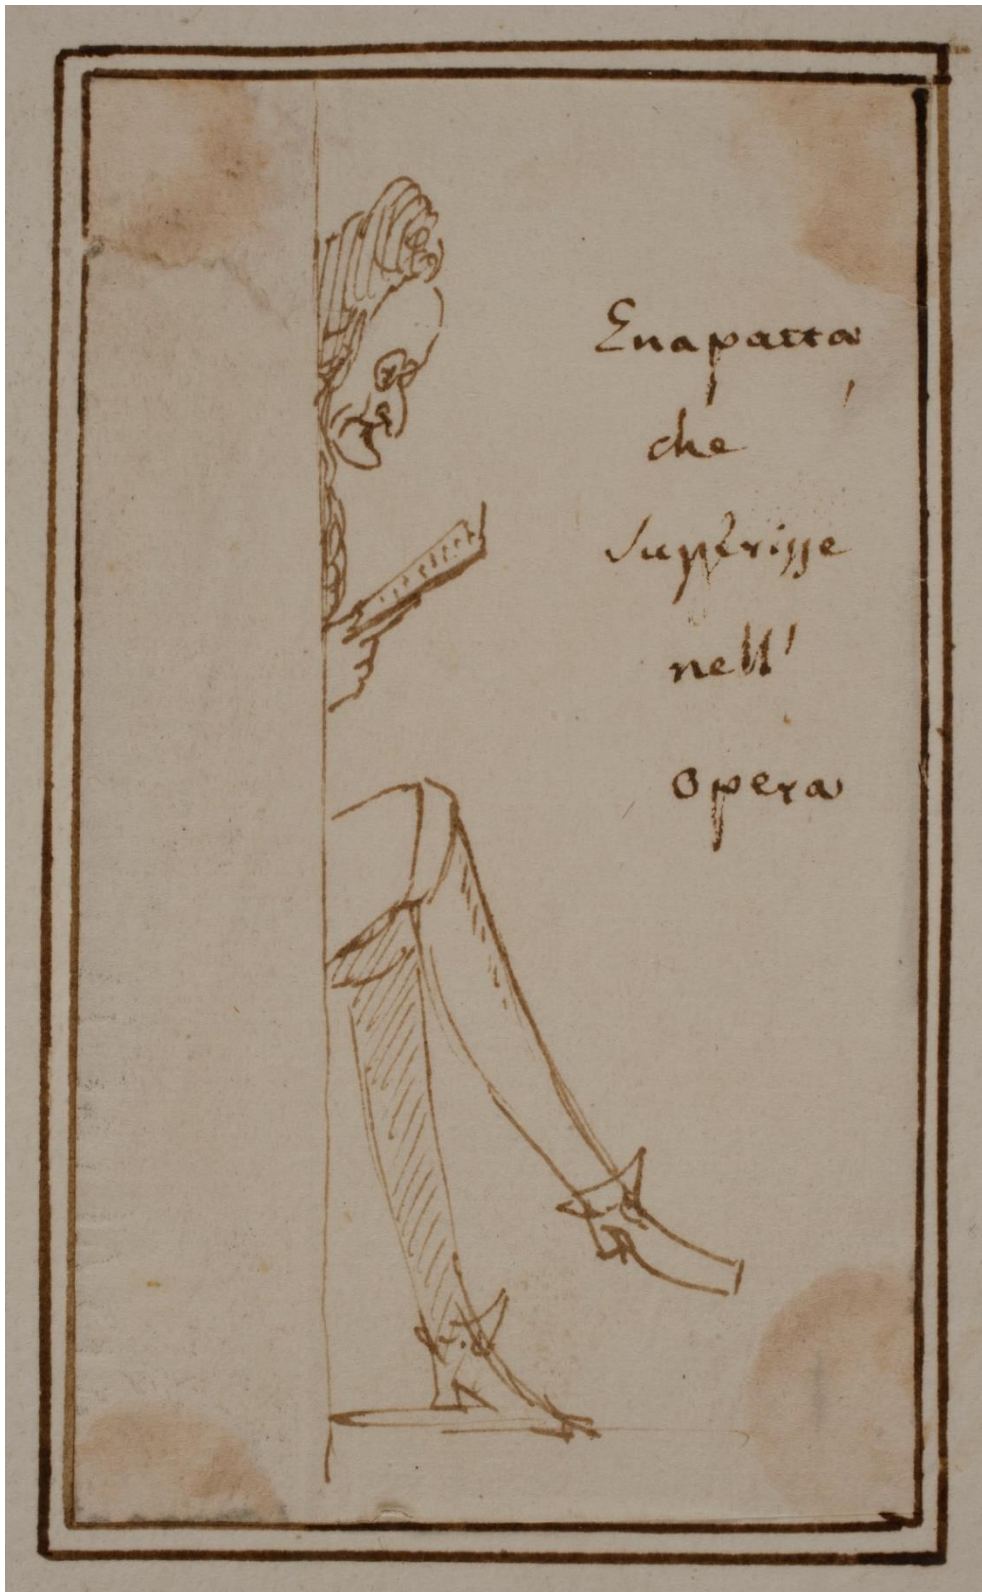 Enapatta
che
Suggerisse
nell'
opera